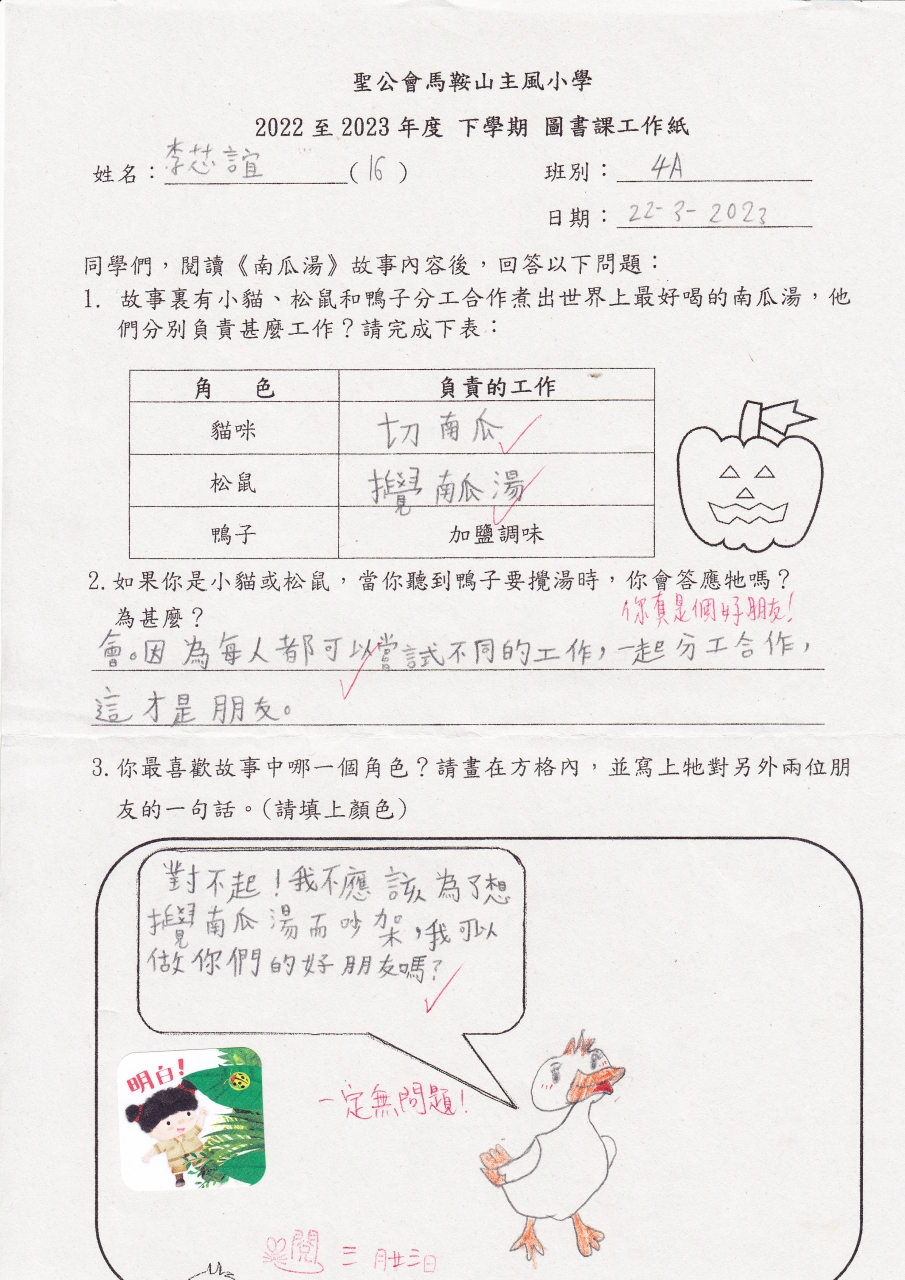 聖公會馬鞍山主風小學
2022 至 2023 年度 下學期 圖書課工作紙
姓名：李芯誼 (16)
班別：4A
日期：22-3-2023
同學們，閱讀《南瓜湯》故事內容後，回答以下問題：
1. 故事裏有小貓、松鼠和鴨子分工合作煮出世界上最好喝的南瓜湯，他
們分別負責甚麼工作？請完成下表：
角 色 負責的工作
貓咪 切南瓜
松鼠 攪南瓜湯
鴨子 加鹽調味
2. 如果你是小貓或松鼠，當你聽到鴨子要攪湯時，你會答應牠嗎？
為甚麼？
你真是個好朋友！
會。因為每人都可以嘗試不同的工作，一起分工合作，
這才是朋友。
3. 你最喜歡故事中哪一個角色？請畫在方格內，並寫上牠對另外兩位朋
友的一句話。(請填上顏色)
對不起！我不應該為了想
攪南瓜湯而吵架，我可以
做你們的好朋友嗎？
明白！
一定無問題！
閱 三月廿三日